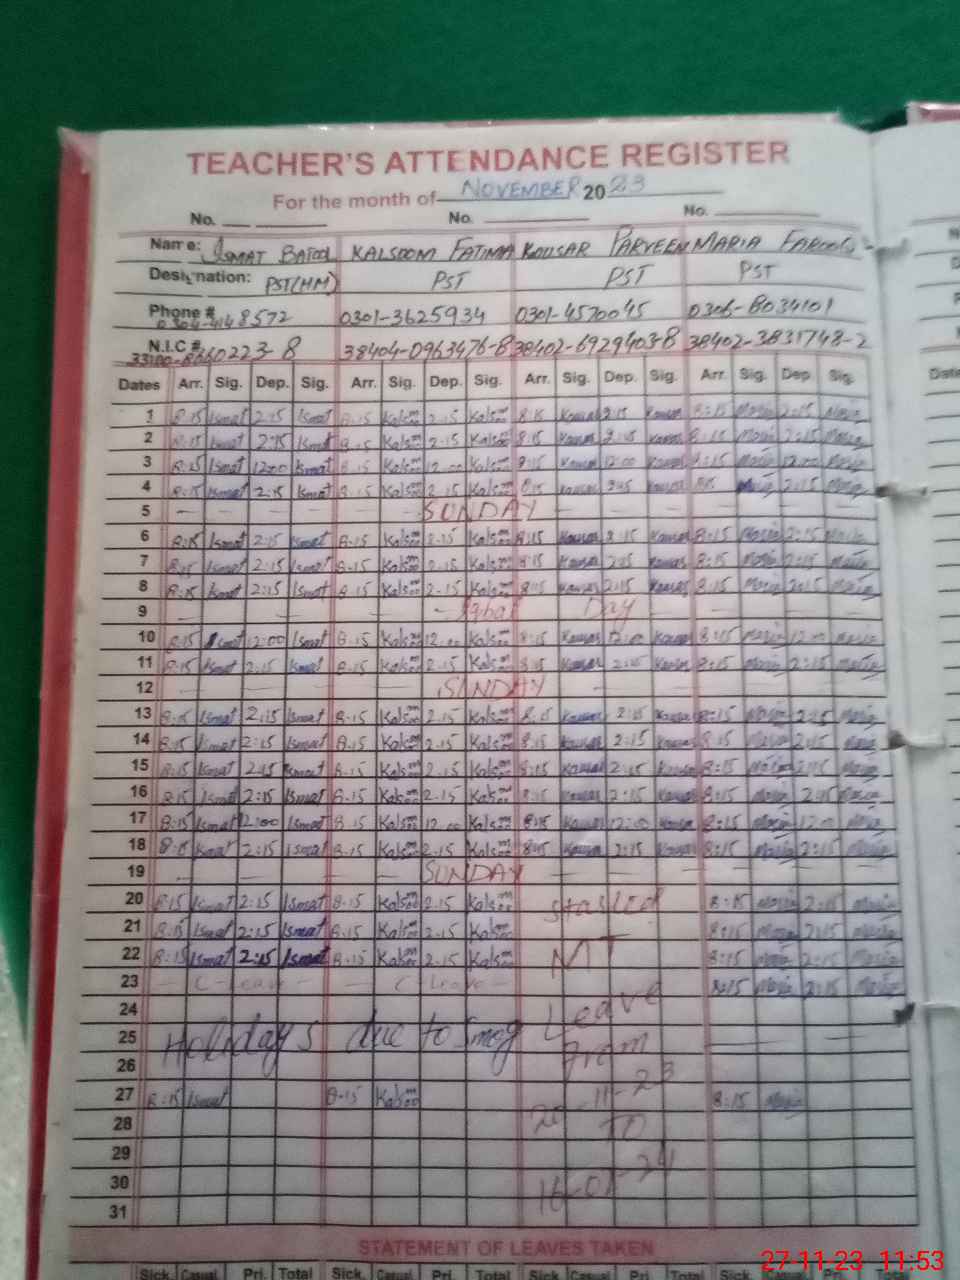 TEACHER'S ATTENDANCE REGISTER
For the month of NOVEMBER 2023
No. No. No.
Name: ISMAT BATOOL KALSOOM FATIMA KOUSAR PARVEEN MARIA FAROOQ
Designation: PST(HM) PST PST PST
Phone # 8572 0301-3625934 0301-4570045 0306-8034101
N.I.C #. 0223-8 38404-0963476-8 38402-6929403-8 38402-3831748-2
Dates Arr. Sig. Dep. Sig. Arr. Sig. Dep. Sig. Arr. Sig. Dep. Sig. Arr. Sig. Dep Sig.
1 8:15 Ismat 2:15 Ismat 8.15 Kalsoom 2.15 Kalsoom 8:15 Kousar 2:15 Kousar 8:15 Maria 2:15 Maria
2 8:15 Ismat 2:15 Ismat 8.15 Kalsoom 2.15 Kalsoom 8:15 Kousar 2:15 Kousar 8:15 Maria 2:15 Maria
3 8:15 Ismat 12:00 Ismat 8.15 Kalsoom 12.00 Kalsoom 8:15 Kousar 12:00 Kousar 8:15 Maria 12:00 Maria
4 8:15 Ismat 2:15 Ismat 8.15 Kalsoom 2.15 Kalsoom 8:15 Kousar 2:15 Kousar 8:15 Maria 2:15 Maria
5 SUNDAY
6 8:15 Ismat 2:15 Ismat 8.15 Kalsoom 2.15 Kalsoom 8:15 Kousar 2:15 Kousar 8:15 Maria 2:15 Maria
7 8:15 Ismat 2:15 Ismat 8.15 Kalsoom 2.15 Kalsoom 8:15 Kousar 2:15 Kousar 8:15 Maria 2:15 Maria
8 8:15 Ismat 2:15 Ismat 8.15 Kalsoom 2.15 Kalsoom 8:15 Kousar 2:15 Kousar 8:15 Maria 2:15 Maria
9 Iqbal Day
10 8:15 Ismat 12:00 Ismat 8.15 Kalsoom 12.00 Kalsoom 8:15 Kousar 12:00 Kousar 8:15 Maria 12:00 Maria
11 8:15 Ismat 2:15 Ismat 8.15 Kalsoom 2.15 Kalsoom 8:15 Kousar 2:15 Kousar 8:15 Maria 2:15 Maria
12 SUNDAY
13 8:15 Ismat 2:15 Ismat 8.15 Kalsoom 2.15 Kalsoom 8:15 Kousar 2:15 Kousar 8:15 Maria 2:15 Maria
14 8:15 Ismat 2:15 Ismat 8.15 Kalsoom 2.15 Kalsoom 8:15 Kousar 2:15 Kousar 8:15 Maria 2:15 Maria
15 8:15 Ismat 2:15 Ismat 8.15 Kalsoom 2.15 Kalsoom 8:15 Kousar 2:15 Kousar 8:15 Maria 2:15 Maria
16 8:15 Ismat 2:15 Ismat 8.15 Kalsoom 2.15 Kalsoom 8:15 Kousar 2:15 Kousar 8:15 Maria 2:15 Maria
17 8:15 Ismat 12:00 Ismat 8.15 Kalsoom 12.00 Kalsoom 8:15 Kousar 12:00 Kousar 8:15 Maria 12:00 Maria
18 8:15 Ismat 2:15 Ismat 8.15 Kalsoom 2.15 Kalsoom 8:15 Kousar 2:15 Kousar 8:15 Maria 2:15 Maria
19 SUNDAY
20 8:15 Ismat 2:15 Ismat 8.15 Kalsoom 2.15 Kalsoom 8:15 Maria 2:15 Maria
21 8:15 Ismat 2:15 Ismat 8.15 Kalsoom 2.15 Kalsoom 8:15 Maria 2:15 Maria
22 8:15 Ismat 2:15 Ismat 8.15 Kalsoom 2.15 Kalsoom MT 8:15 Maria 2:15 Maria
23 C-Leave C-Leave 8:15 Maria 2:15 Maria
24 Leave
25 Holidays due to Smog From
26
27 8:15 Ismat 8.15 Kalsoom 20-11-23 8:15 Maria
28 TO
29
30 16-01-24
31
STATEMENT OF LEAVES TAKEN
Sick Casual Pri. Total Sick. Casual Pri. Total Sick Casual Pri. Total Sick Casual Pri.
27-11-23 11:53